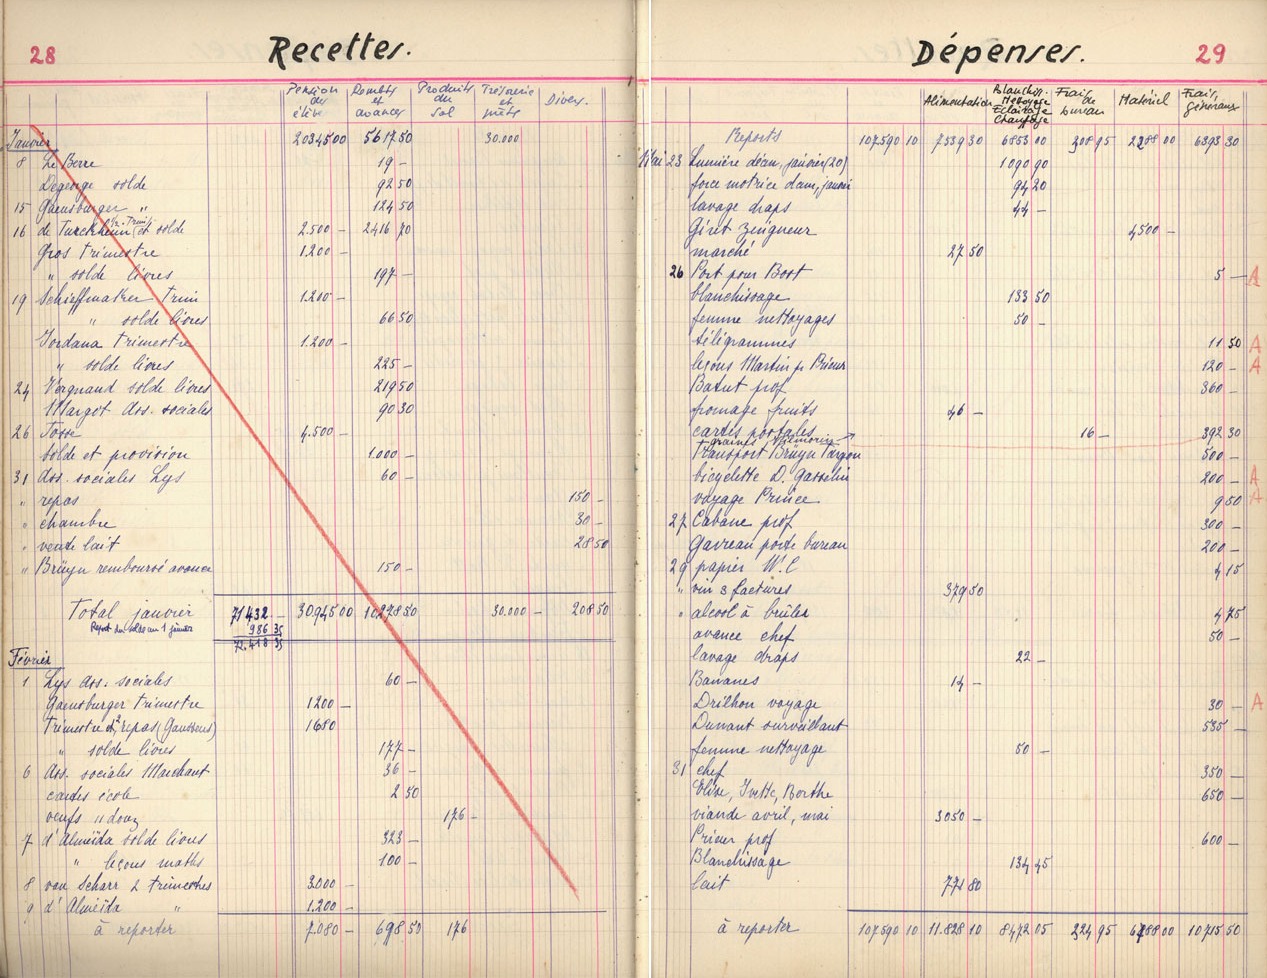 28 Recettes.
Pension des élèves Rembts et avances Produits du sol Trésorerie et prêts Divers.
Janvier 20345 00 5617 50 30.000
8 Le Berre 19 -
Degeorge solde 92 50
15 Gaensburger " 124 50
16 de Turckheim 1/2 Trim et solde 2.500 - 2416 70
Gros trimestre 1.200 -
" solde livres 197 -
19 Schieffmatter Trim 1.200 -
" solde livres 66 50
Jordana trimestre 1.200 -
" solde livres 225 -
24 Vergnaud solde livres 219 50
Margot Ass. sociales 90 30
26 4.500 -
solde et provision 1.000 -
31 Ass. sociales Lys 60 -
" repas 150 -
" chambre 30 -
" vente lait 28 50
" Brüyn remboursé avance 150 -
Total janvier 71432 - 30945 00 10278 50 30.000 - 208 50
Report du solde au 1 janvier 986 35
72.418 35
Février
1 Lys Ass. sociales 60 -
Gaensburger trimestre 1200 -
Trimestre et 2 repas (Gaussens) 1680
" solde livres 177 -
6 Ass. sociales Marchant 36 -
cartes école 2 50
oeufs 11 douz 176 -
7 d'Almeïda solde livres 323 -
" leçons maths 100 -
8 van Scharr 2 trimestres 3.000 -
9 d'Almeïda " 1.200 -
à reporter 7.080 - 698 50 176
Dépenses. 29
Alimentation Blanchiss. Nettoyage Eclairage Chauffage Frais de bureau Matériel Frais généraux
Reports 107590 10 7539 30 6853 00 308 95 2288 00 6393 30
Mai 23 Lumière déam, janvier (20) 1090 90
force motrice dam, janvier 94 20
lavage draps 44 -
Giret zingueur 4500 -
marché 27 50
26 Port pour Boot 5 - A
blanchissage 133 50
femme nettoyages 50 -
télégrammes 11 50 A
leçons Martin pr Prieur 120 - A
Batut prof 360 -
fromage fruits 46 -
cartes postales 16 - 392 30
+ graines
Transport Brüyn Targon 500 -
bicyclette D. Gasselin 200 - A
voyage Prince 9 50 A
27 Cabane prof 300 -
Gavreau poste bureau 200 -
29 papier W.C 4 15
" vin 3 factures 379 50
" alcool à brûler 4 75
avance chef 50 -
lavage draps 22 -
Bananes 14 -
Drilhon voyage 30 - A
Dunant surveillant 535 -
femme nettoyage 50 -
31 chef 350 -
Elise, Ivette, Berthe 650 -
viande avril, mai 3050 -
Prieur prof 600 -
Blanchissage 134 45
lait 771 80
à reporter 107590 10 11.828 10 8472 05 324 95 6788 00 10715 50